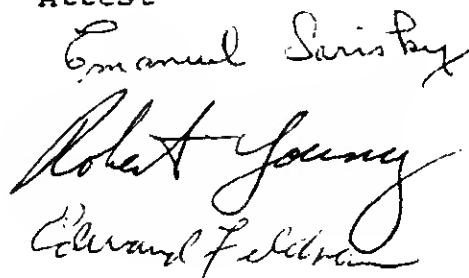 Attest
Emanuel Sarisky
Robert Young
Edward Feldman